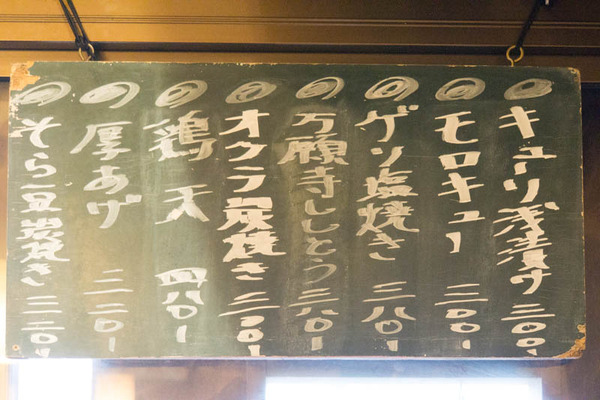 キューリ浅漬ケ 三〇〇ー
モロキュー 三〇〇ー
ゲソ塩焼き 三八〇ー
万願寺ししとう 三八〇ー
オクラ炭焼き 三〇〇ー
鶏天 四八〇ー
厚あげ 三二〇ー
そら豆炭焼き 三二〇ー